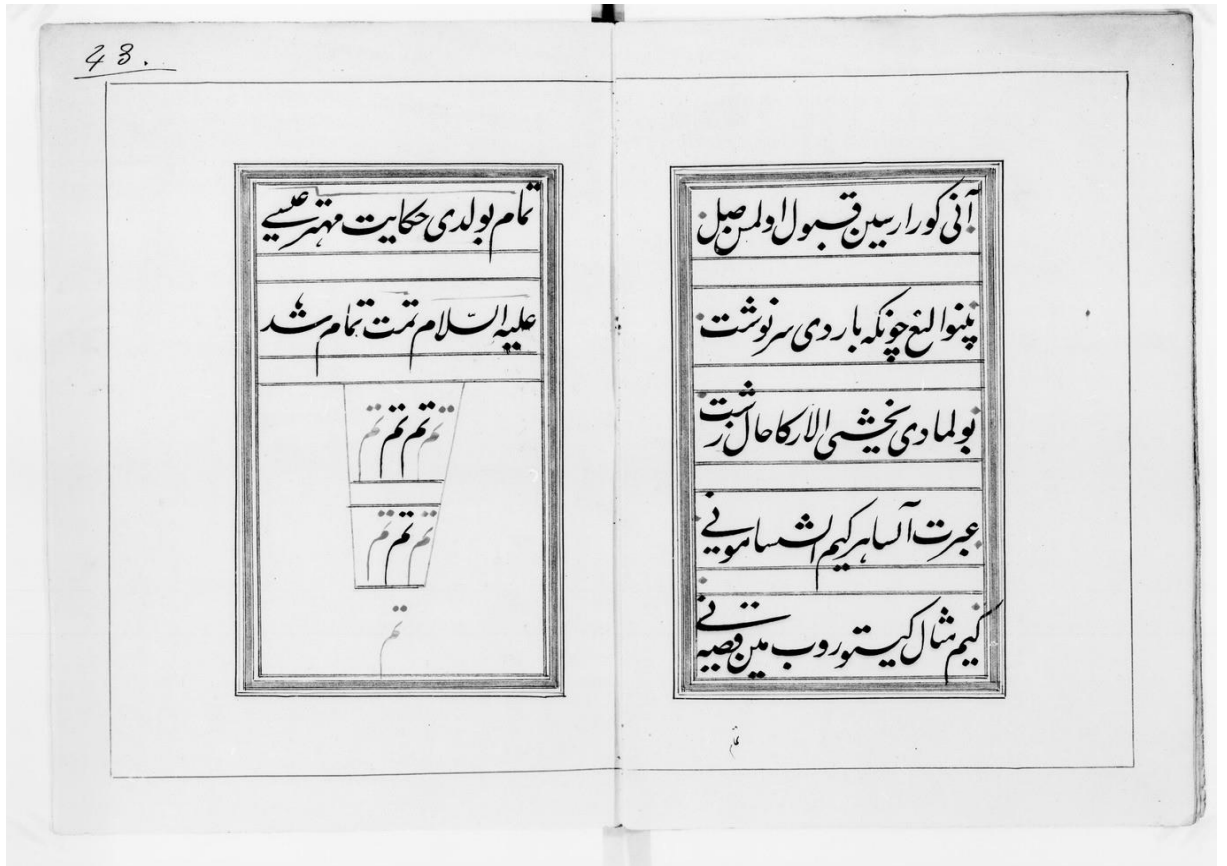 آنی کورارسین قبول اولمس صل
چونکه باردی سرنوشت
بولمادی یخشی الارکا حال زشت
عبرت آلسا هرکیم ایشتسا مونی
کیم مثال کیستوروب مین قصیه نی
تمام
43.
تمام بولدی حکایت مهتر عیسی
علیه السلام تمت تمام شد
تم تم تم تم
تم تم تم
تم